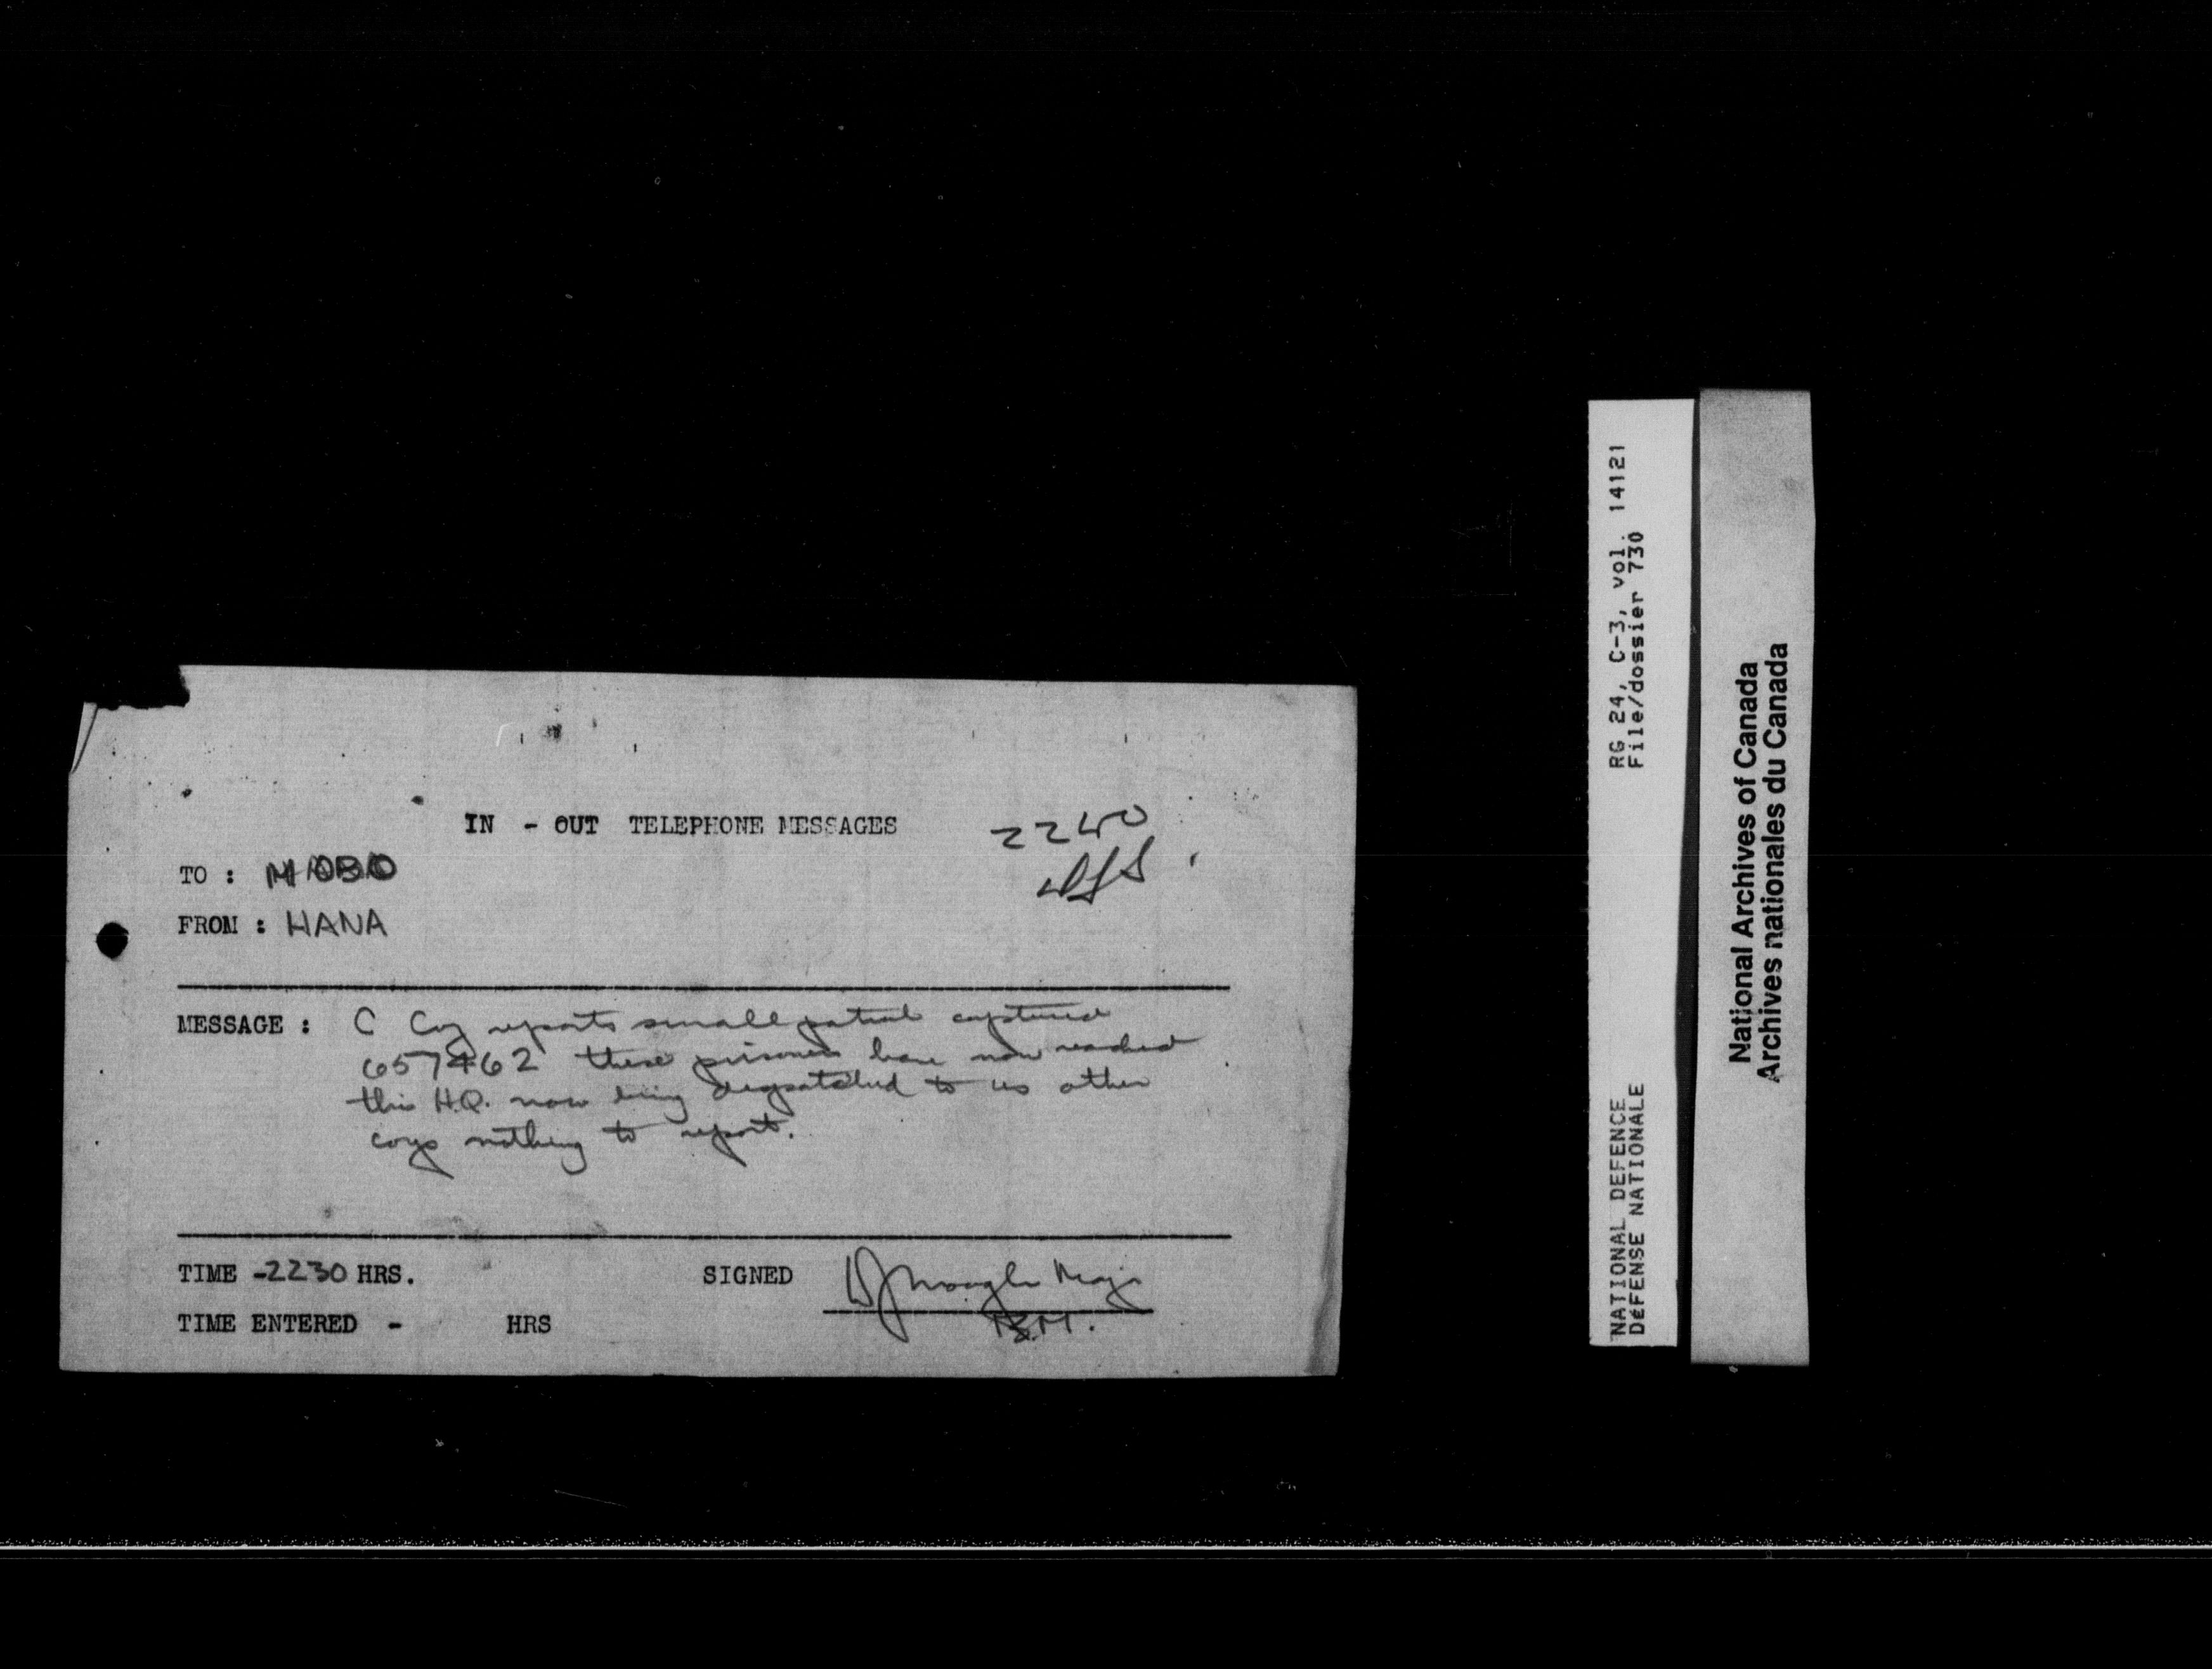 IN - OUT TELEPHONE MESSAGES
2240
TO : MOBO
FROM : HANA
MESSAGE : C Coy reports small patrol captured
657462 these prisoners have now reached
this H.Q. now being despatched to us other
coys nothing to report.
TIME -2230 HRS.
SIGNED Maj
B.M.
TIME ENTERED - HRS
RG 24, C-3, vol. 14121
File/dossier 730
NATIONAL DEFENCE
DéFENSE NATIONALE
National Archives of Canada
Archives nationales du Canada